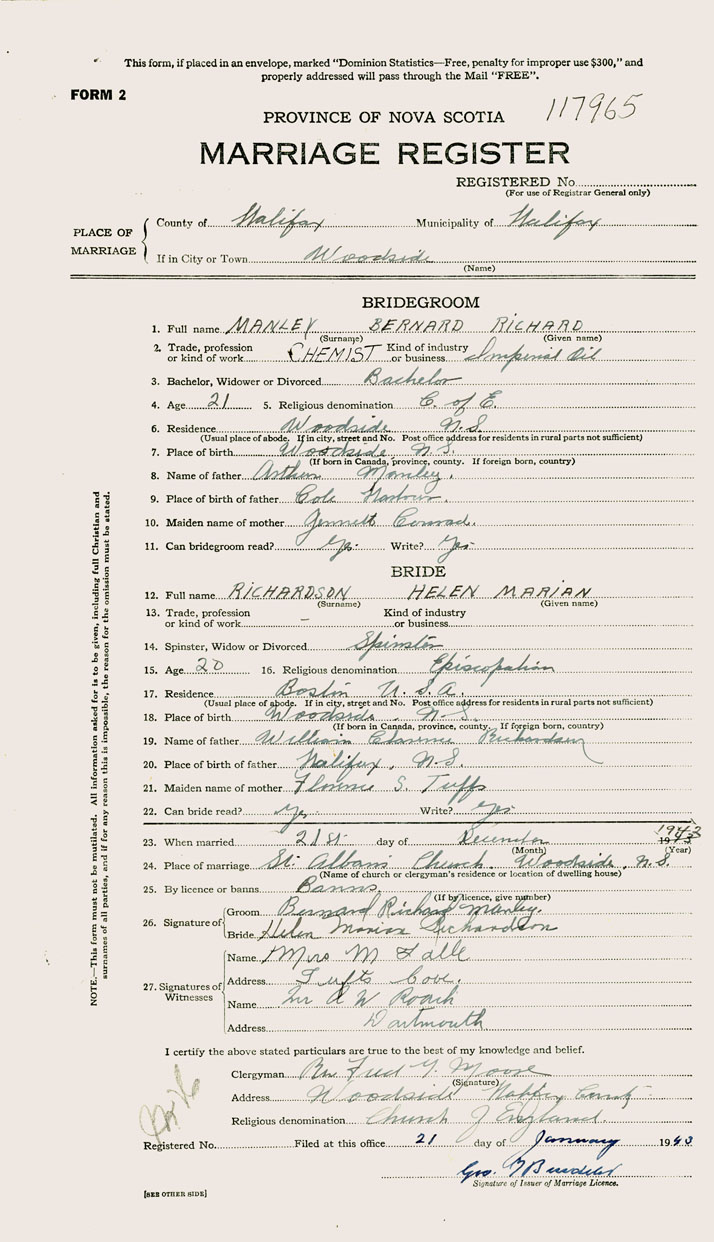 This form, if placed in an envelope, marked "Dominion Statistics—Free, penalty for improper use $300," and
properly addressed will pass through the Mail "FREE".
FORM 2
117965
PROVINCE OF NOVA SCOTIA
MARRIAGE REGISTER
REGISTERED No.
(For use of Registrar General only)
PLACE OF MARRIAGE
County of Halifax Municipality of Halifax
If in City or Town Woodside
(Name)
BRIDEGROOM
1. Full name MANLEY BERNARD RICHARD
(Surname) (Given name)
2. Trade, profession or kind of work CHEMIST Kind of industry or business Imperial Oil
3. Bachelor, Widower or Divorced Bachelor
4. Age 21 5. Religious denomination C. of E.
6. Residence Woodside N.S.
(Usual place of abode. If in city, street and No. Post office address for residents in rural parts not sufficient)
7. Place of birth Woodside N.S.
(If born in Canada, province, county. If foreign born, country)
8. Name of father Arthur Manley.
9. Place of birth of father Cole Harbour.
10. Maiden name of mother Jennett Conrad.
11. Can bridegroom read? Yes Write? Yes
BRIDE
12. Full name RICHARDSON HELEN MARIAN
(Surname) (Given name)
13. Trade, profession or kind of work — Kind of industry or business
14. Spinster, Widow or Divorced Spinster
15. Age 20 16. Religious denomination Episcopalian
17. Residence Boston U.S.A.
(Usual place of abode. If in city, street and No. Post office address for residents in rural parts not sufficient)
18. Place of birth Woodside, N.S.
(If born in Canada, province, county. If foreign born, country)
19. Name of father William Clarence Richardson
20. Place of birth of father Halifax, N.S.
21. Maiden name of mother Florence S. Tuffs
22. Can bride read? Yes Write? Yes
23. When married 21st day of December 1943
(Month) (Year)
24. Place of marriage St. Alban's Church, Woodside, N.S.
(Name of church or clergyman's residence or location of dwelling house)
25. By licence or banns Banns.
(If by licence, give number)
26. Signature of
Groom Bernard Richard Manley.
Bride Helen Marian Richardson
27. Signatures of Witnesses
Name Mrs M
Address Tufts Cove.
Name W Roach
Address Dartmouth
I certify the above stated particulars are true to the best of my knowledge and belief.
Clergyman Rev Fred Y. Moore
(Signature)
Address Woodside Halifax County
Religious denomination Church of England.
Registered No. Filed at this office 21 day of January 1943
Geo.
Signature of Issuer of Marriage Licence.
[SEE OTHER SIDE]
NOTE.—This form must not be mutilated. All information asked for is to be given, including full Christian and
surnames of all parties, and if for any reason this is impossible, the reason for the omission must be stated.